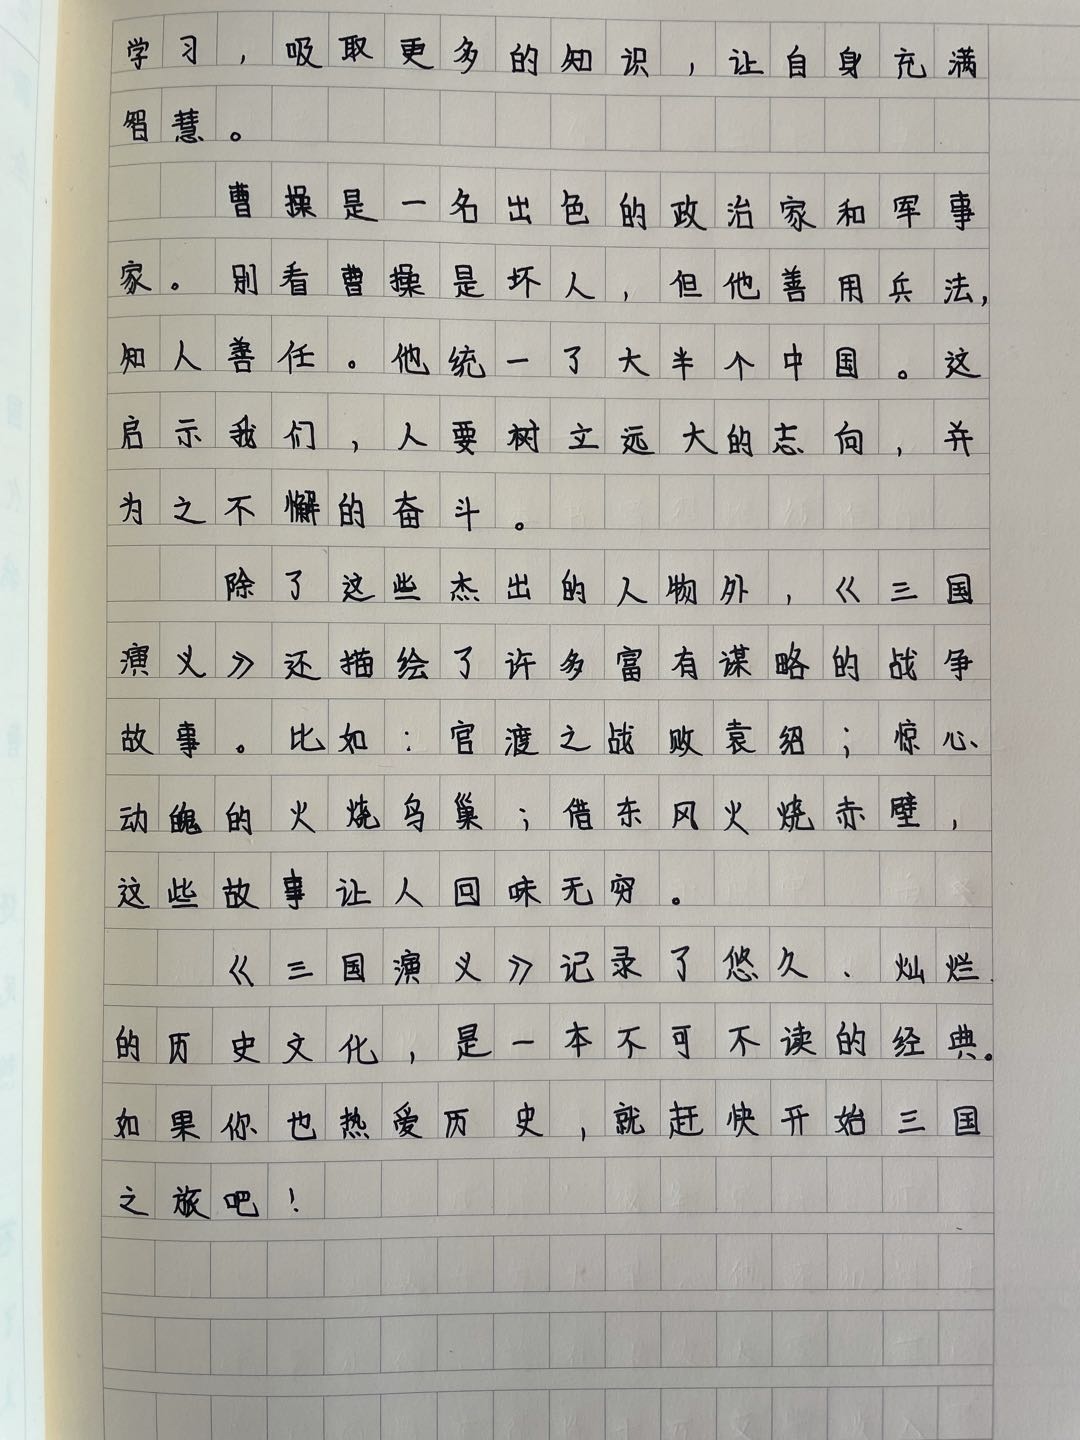 学习，吸取更多的知识，让自身充满
智慧。
曹操是一名出色的政治家和军事
家。别看曹操是坏人，但他善用兵法，
知人善任。他统一了大半个中国。这
启示我们，人要树立远大的志向，并
为之不懈的奋斗。
除了这些杰出的人物外，《三国
演义》还描绘了许多富有谋略的战争
故事。比如：官渡之战败袁绍；惊心
动魄的火烧鸟巢；借东风火烧赤壁，
这些故事让人回味无穷。
《三国演义》记录了悠久、灿烂
的历史文化，是一本不可不读的经典。
如果你也热爱历史，就赶快开始三国
之旅吧！